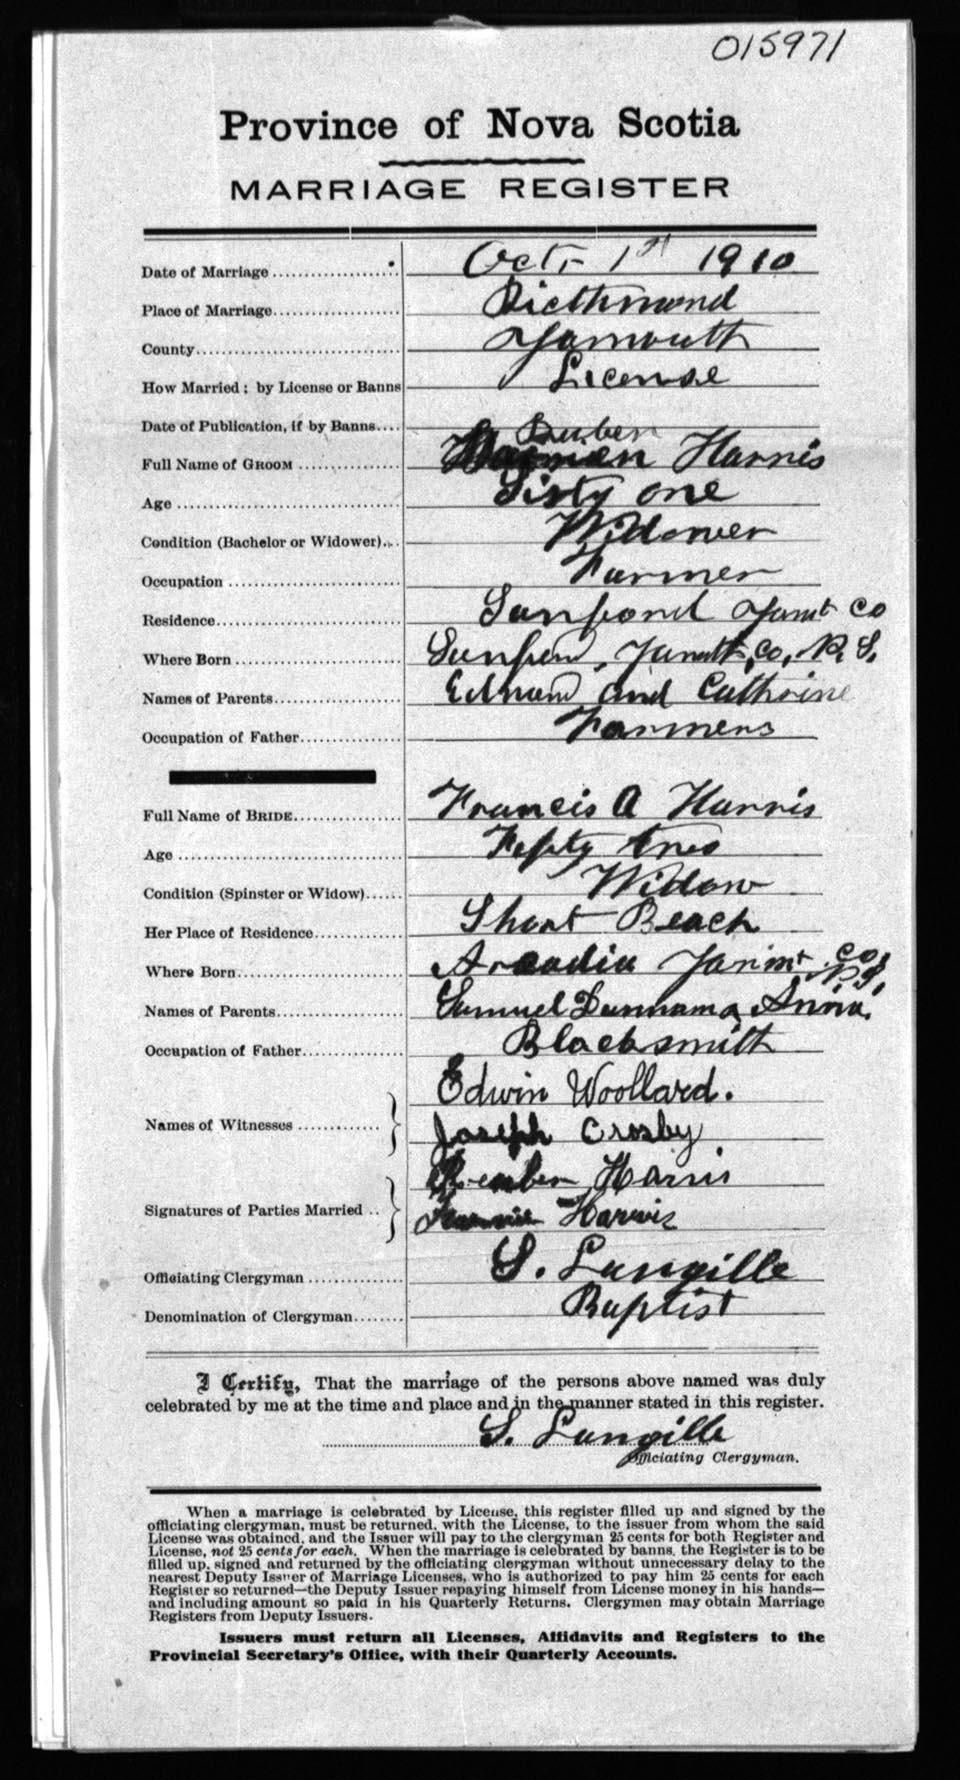 015971
Province of Nova Scotia
MARRIAGE REGISTER
Date of Marriage Oct. 1st 1910
Place of Marriage Richmond
County Yarmouth
How Married; by License or Banns License
Date of Publication, if by Banns
Reuben
Full Name of GROOM Harris
Age Sixty one
Condition (Bachelor or Widower) Widower
Occupation Farmer
Residence Co
Where Born Co, N. S.
Names of Parents Edward and Cathrine
Occupation of Father Farmers
Full Name of BRIDE Francis A Harris
Age Fifty two
Condition (Spinster or Widow) Widow
Her Place of Residence Short Beach
Where Born Arcadia Yarmt Co, N.S.
Names of Parents Samuel Anna.
Occupation of Father Blacksmith
Names of Witnesses Edwin Woollard.
Joseph Crosby
Signatures of Parties Married Reuben Harris
Fannie Harris
Officiating Clergyman S. Langille
Denomination of Clergyman Baptist
I Certify, That the marriage of the persons above named was duly
celebrated by me at the time and place and in the manner stated in this register.
S. Langille
Officiating Clergyman.
When a marriage is celebrated by License, this register filled up and signed by the
officiating clergyman, must be returned, with the License, to the issuer from whom the said
License was obtained, and the Issuer will pay to the clergyman 25 cents for both Register and
License, not 25 cents for each. When the marriage is celebrated by banns, the Register is to be
filled up, signed and returned by the officiating clergyman without unnecessary delay to the
nearest Deputy Issuer of Marriage Licenses, who is authorized to pay him 25 cents for each
Register so returned—the Deputy Issuer repaying himself from License money in his hands—
and including amount so paid in his Quarterly Returns. Clergymen may obtain Marriage
Registers from Deputy Issuers.
Issuers must return all Licenses, Affidavits and Registers to the
Provincial Secretary's Office, with their Quarterly Accounts.